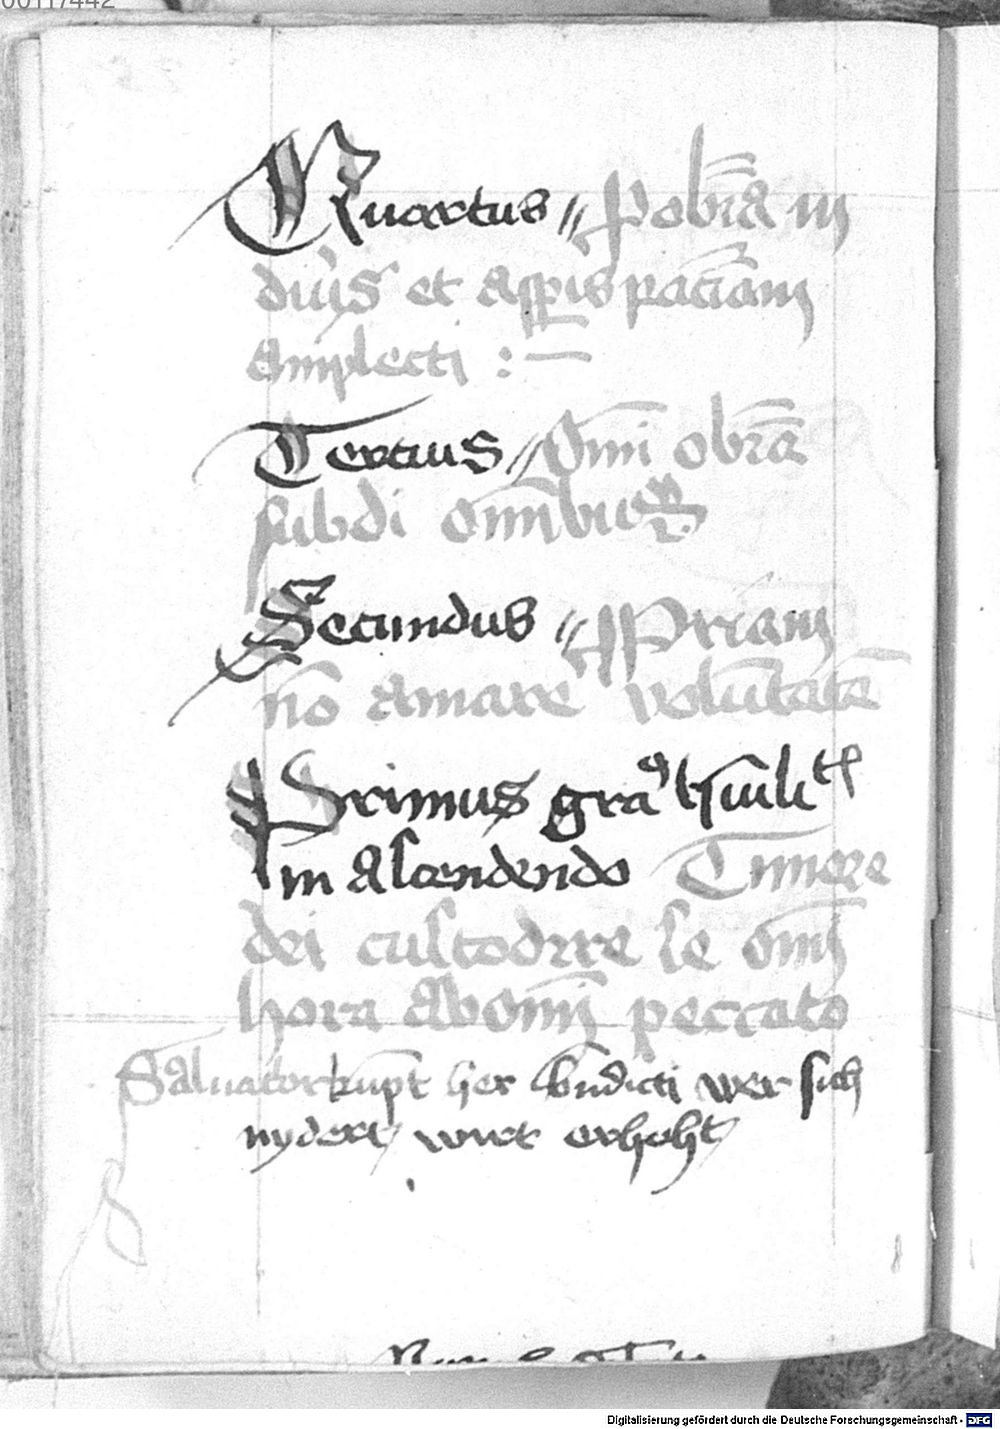 00117442
Quartus // P obiā in
duris et aspis paciam
amplecti : —
Tercius // Omi obiā
subdi omibus
Secundus // Ppriam
no amare volutate
Primus gra humilitatis
in ascendendo Timere
dei custodire se omi
hora ab omi peccato
Saluator her wer sich
nydert wirt erhoht
Digitalisierung gefördert durch die Deutsche Forschungsgemeinschaft - DFG